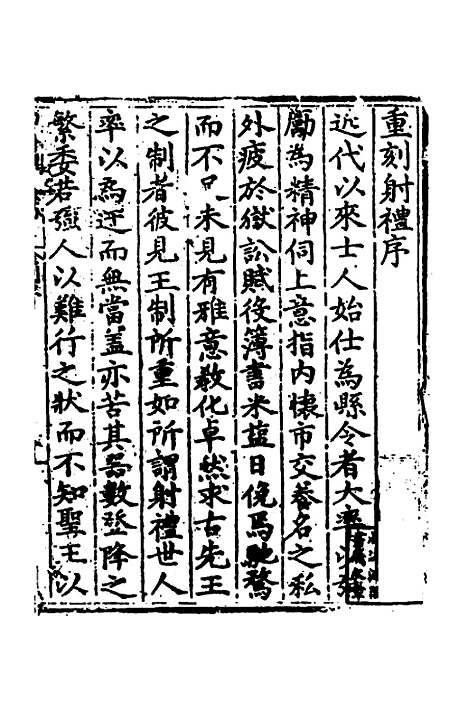 重刻射禮序
近代以來士人始仕為縣令者大率以
勵為精神伺上意指内懷市交養名之私
外疲於獄訟賦役簿書米鹽日俛焉馳騖
而不足未見有雅意教化卓然求古先王
之制者彼見王制所重如所謂射禮世人
率以為迂而無當蓋亦苦其器數登降之
繁委若強人以難行之狀而不知聖王以